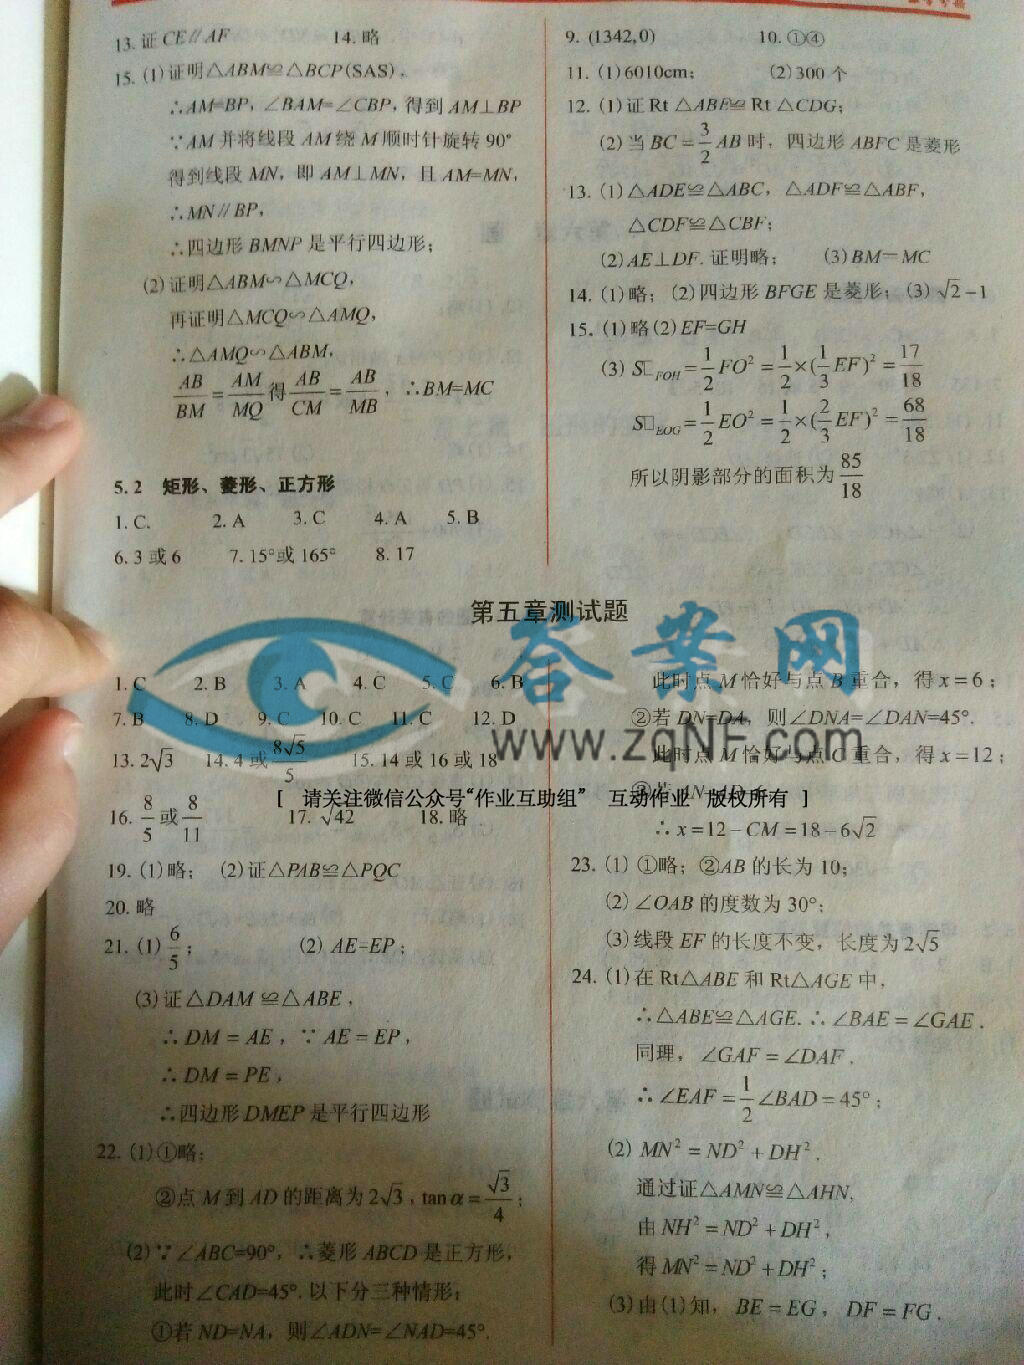 13. 证 CE∥AF 14. 略
15. (1)证明△ABM≌△BCP(SAS),
∴AM=BP, ∠BAM=∠CBP, 得到 AM⊥BP
∵AM 并将线段 AM 绕 M 顺时针旋转 90°
得到线段 MN, 即 AM⊥MN, 且 AM=MN,
∴MN∥BP,
∴四边形 BMNP 是平行四边形;
(2)证明△ABM∽△MCQ,
再证明△MCQ∽△AMQ,
∴△AMQ∽△ABM,
AB/BM = AM/MQ 得 AB/CM = AB/MB, ∴BM=MC
5. 2 矩形、菱形、正方形
1. C. 2. A 3. C 4. A 5. B
6. 3 或 6 7. 15°或 165° 8. 17
9. (1342,0) 10. ①④
11. (1)6010cm; (2)300 个
12. (1)证 Rt △ABE≌ Rt △CDG;
(2)当 BC = 3/2 AB 时, 四边形 ABFC 是菱形
13. (1)△ADE≌△ABC, △ADF≌△ABF,
△CDF≌△CBF;
(2)AE⊥DF. 证明略; (3)BM=MC
14. (1)略; (2)四边形 BFGE 是菱形; (3) √2-1
15. (1)略(2)EF=GH
(3) S□FOH = 1/2 FO² = 1/2 ×(1/3 EF)² = 17/18
S□EOG = 1/2 EO² = 1/2 ×(2/3 EF)² = 68/18
所以阴影部分的面积为 85/18
第五章测试题
1. C 2. B 3. A 4. C 5. C 6. B
7. B 8. D 9. C 10. C 11. C 12. D
13. 2√3 14. 4 或 8√5/5 15. 14 或 16 或 18
16. 8/5 或 8/11 17. √42 18. 略
19. (1)略; (2)证△PAB≌△PQC
20. 略
21. (1) 6/5; (2) AE=EP;
(3)证△DAM ≌△ABE,
∴ DM = AE, ∵ AE = EP,
∴ DM = PE,
∴四边形 DMEP 是平行四边形
22. (1)①略;
②点 M 到 AD 的距离为 2√3, tanα = √3/4;
(2)∵∠ABC=90°, ∴菱形 ABCD 是正方形,
此时∠CAD=45°. 以下分三种情形:
①若 ND=NA, 则∠ADN=∠NAD=45°.
此时点 M 恰好与点 B 重合, 得 x=6;
②若 DN=DA, 则∠DNA=∠DAN=45°.
此时点 M 恰好与点 C 重合, 得 x=12;
③若 AN=AD=6,
∴ x=12-CM=18-6√2
23. (1) ①略; ②AB 的长为 10;
(2) ∠OAB 的度数为 30°;
(3)线段 EF 的长度不变, 长度为 2√5
24. (1)在 Rt△ABE 和 Rt△AGE 中,
∴△ABE≌△AGE. ∴∠BAE=∠GAE.
同理, ∠GAF=∠DAF.
∴∠EAF = 1/2 ∠BAD = 45°;
(2) MN² = ND² + DH².
通过证△AMN≌△AHN,
由 NH² = ND² + DH²,
得 MN² = ND² + DH²;
(3)由(1)知, BE=EG, DF=FG.
答案网
www.zqNF.com
[ 请关注微信公众号“作业互助组” 互动作业 版权所有 ]